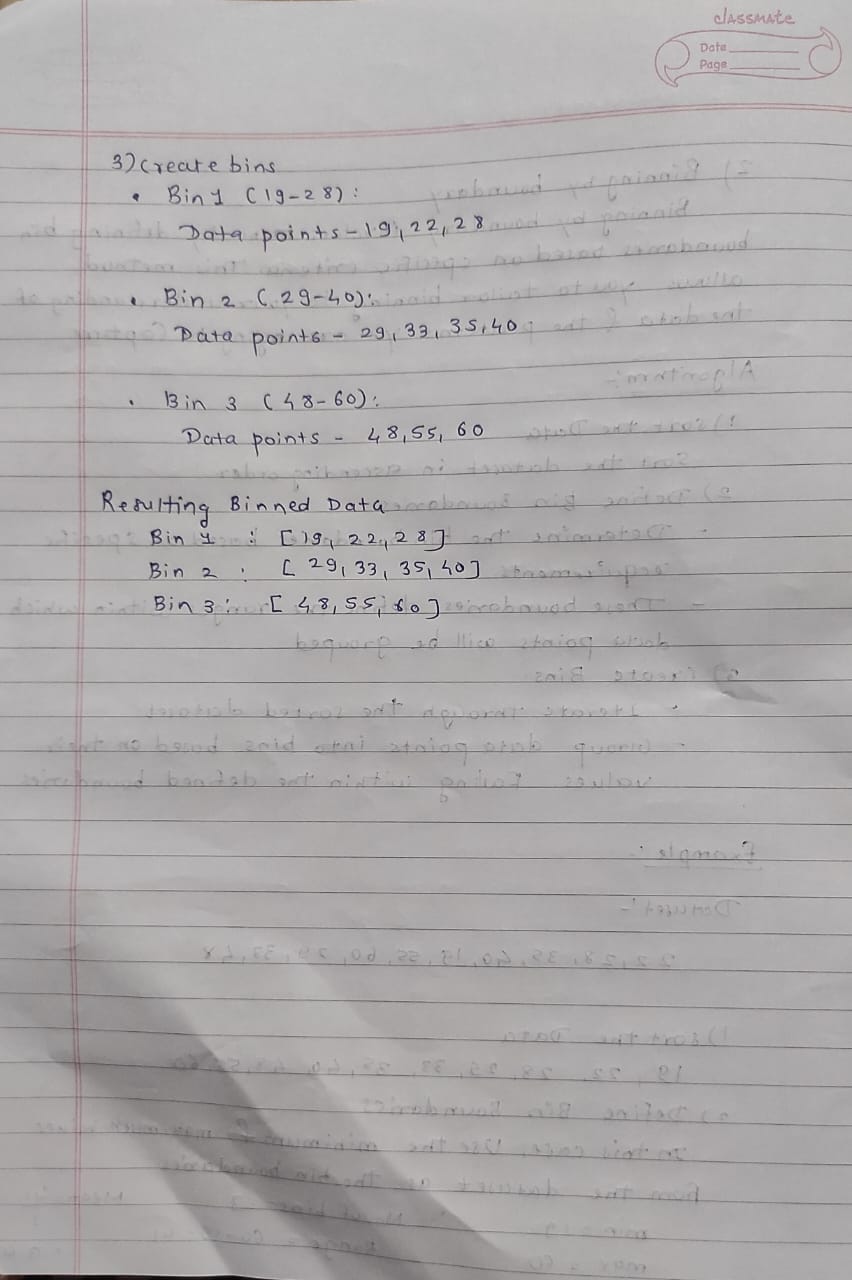 classmate
Date
Page
3) Create bins
• Bin 1 (19-28):
Data points - 19, 22, 28
• Bin 2 (29-40):
Data points - 29, 33, 35, 40
• Bin 3 (48-60):
Data points - 48, 55, 60
Resulting Binned Data
Bin 1 : [19, 22, 28]
Bin 2 : [29, 33, 35, 40]
Bin 3 : [48, 55, 60]